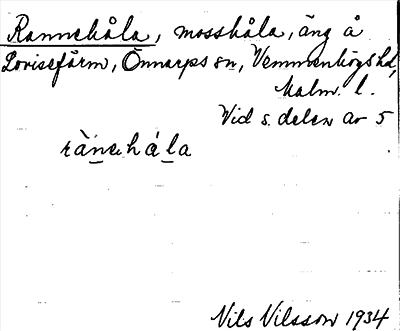 Rannehåla, mosshåla, äng å
Lovisefärm, Önnarps sn, Vemmenhögs hd,
Malm. l.
Vid s. delen av 5
rànehála
Nils Nilsson 1934